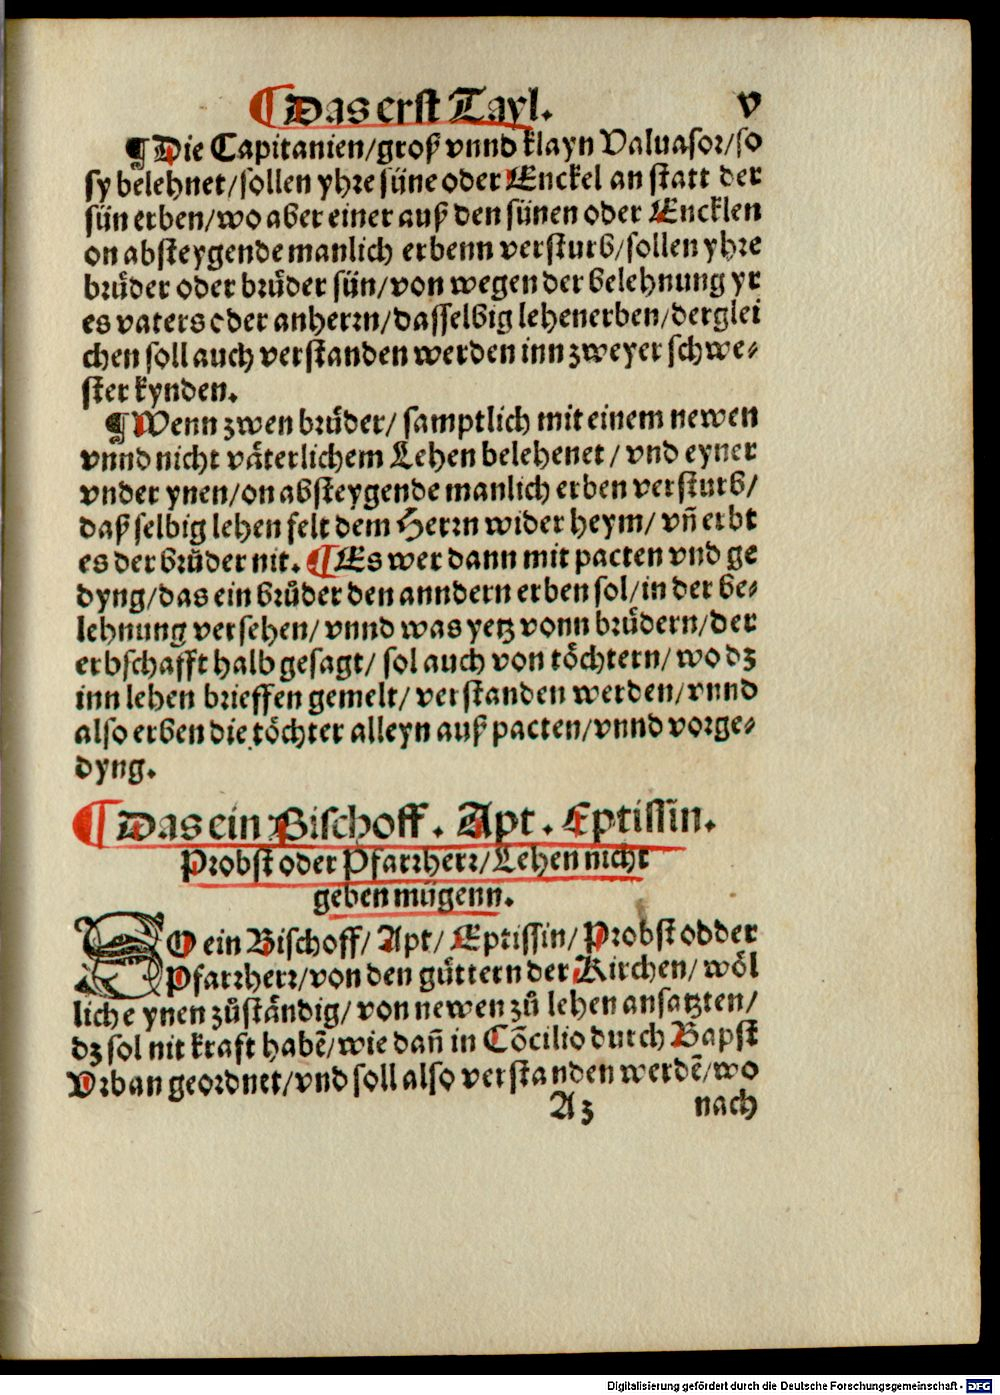 ¶Das erst Tayl. v
¶Die Capitanien/groß vnnd klayn Valuasor/so
sy belehnet/sollen yhre süne oder Enckel an statt der
sün erben/wo aber einer auß den sünen oder Encklen
on absteygende manlich erbenn versturb/sollen yhre
brůder oder brůder sün/von wegen der belehnung yr
es vaters oder anherrn/dasselbig lehenerben/derglei
chen soll auch verstanden werden inn zweyer schwe⸗
ster kynden.
¶Wenn zwen brůder/ samptlich mit einem newen
vnnd nicht väterlichem Lehen belehenet/ vnd eyner
vnder ynen/on absteygende manlich erben versturb/
daß selbig lehen felt dem Herrn wider heym/ vñ erbt
es der brůder nit. ¶Es wer dann mit pacten vnd ge
dyng/das ein brůder den anndern erben sol/in der be⸗
lehnung versehen/ vnnd was yetz vonn brůdern/der
erbschafft halb gesagt/ sol auch von töchtern/ wo dz
inn lehen brieffen gemelt/ verstanden werden/vnnd
also erben die töchter alleyn auß pacten/vnnd vorge⸗
dyng.
¶Das ein Bischoff. Apt. Eptissin.
Probst oder Pfarrherr/Lehen nicht
geben mügenn.
SO ein Bischoff/ Apt/ Eptissin/ Probst odder
Pfarrherr/von den güttern der Kirchen/ wöl
liche ynen zůständig/ von newen zů lehen ansatzten/
dz sol nit kraft habẽ/wie dañ in Cõcilio durch Bapst
Vrban geordnet/vnd soll also verstanden werdẽ/wo
A3 nach
Digitalisierung gefördert durch die Deutsche Forschungsgemeinschaft - DFG